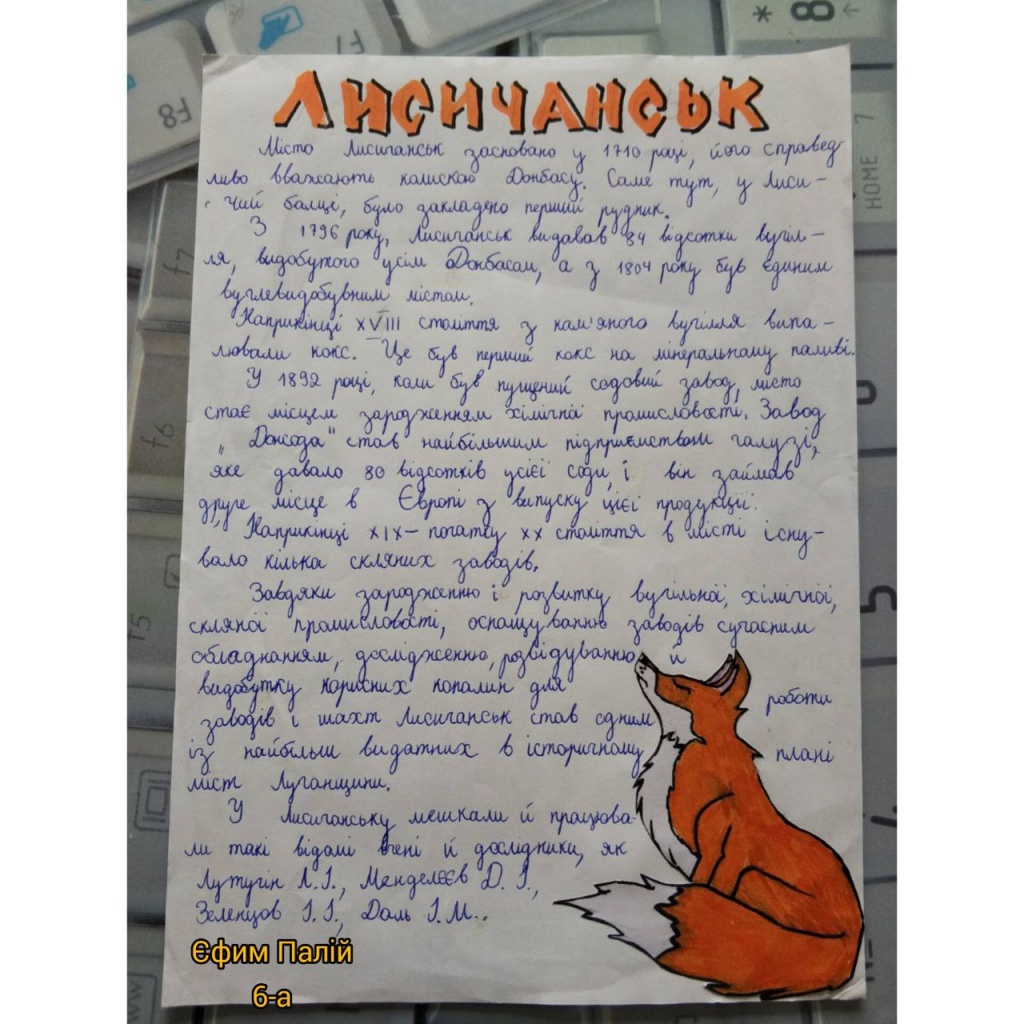 ЛИСИЧАНСЬК
Місто Лисичанськ засновано у 1710 році, його справед
ливо вважають колискою Донбасу. Саме тут, у Лиси-
чий балці, було закладено перший рудник.
З 1796 року, Лисичанськ видавав 84 відсотки вугіл-
ля, видобутого усім Донбасом, а з 1804 року був єдиним
вуглевидобувним містом.
Наприкінці XVIII століття з кам'яного вугілля випа-
лювали кокс. Це був перший кокс на мінеральному паливі.
У 1892 році, коли був пущений содовий завод, місто
стає місцем зародженням хімічної промисловості. Завод
"Донсода" став найбільшим підприємством галузі,
яке давало 80 відсотків усієї соди, і він займав
друге місце в Європі з випуску цієї продукції.
Наприкінці XIX- початку XX століття в місті існу-
вало кілька скляних заводів.
Завдяки зародженню і розвитку вугільної, хімічної,
скляної промисловості, оснащуванню заводів сучасним
обладнанням, дослідженню, розвідуванню й
видобутку корисних копалин для роботи
заводів і шахт Лисичанськ став одним
із найбільш видатних в історичному плані
міст Луганщини.
У Лисичанську мешкали й працюва
ли такі відомі вчені й дослідники, як
Лутугін Л.І., Менделєєв Д. І.,
Зеленцов І.І., Даль І.М..
Єфим Палій
6-а
* 8 ←
F7
F8
HOME 7
f7
f6
f5
5